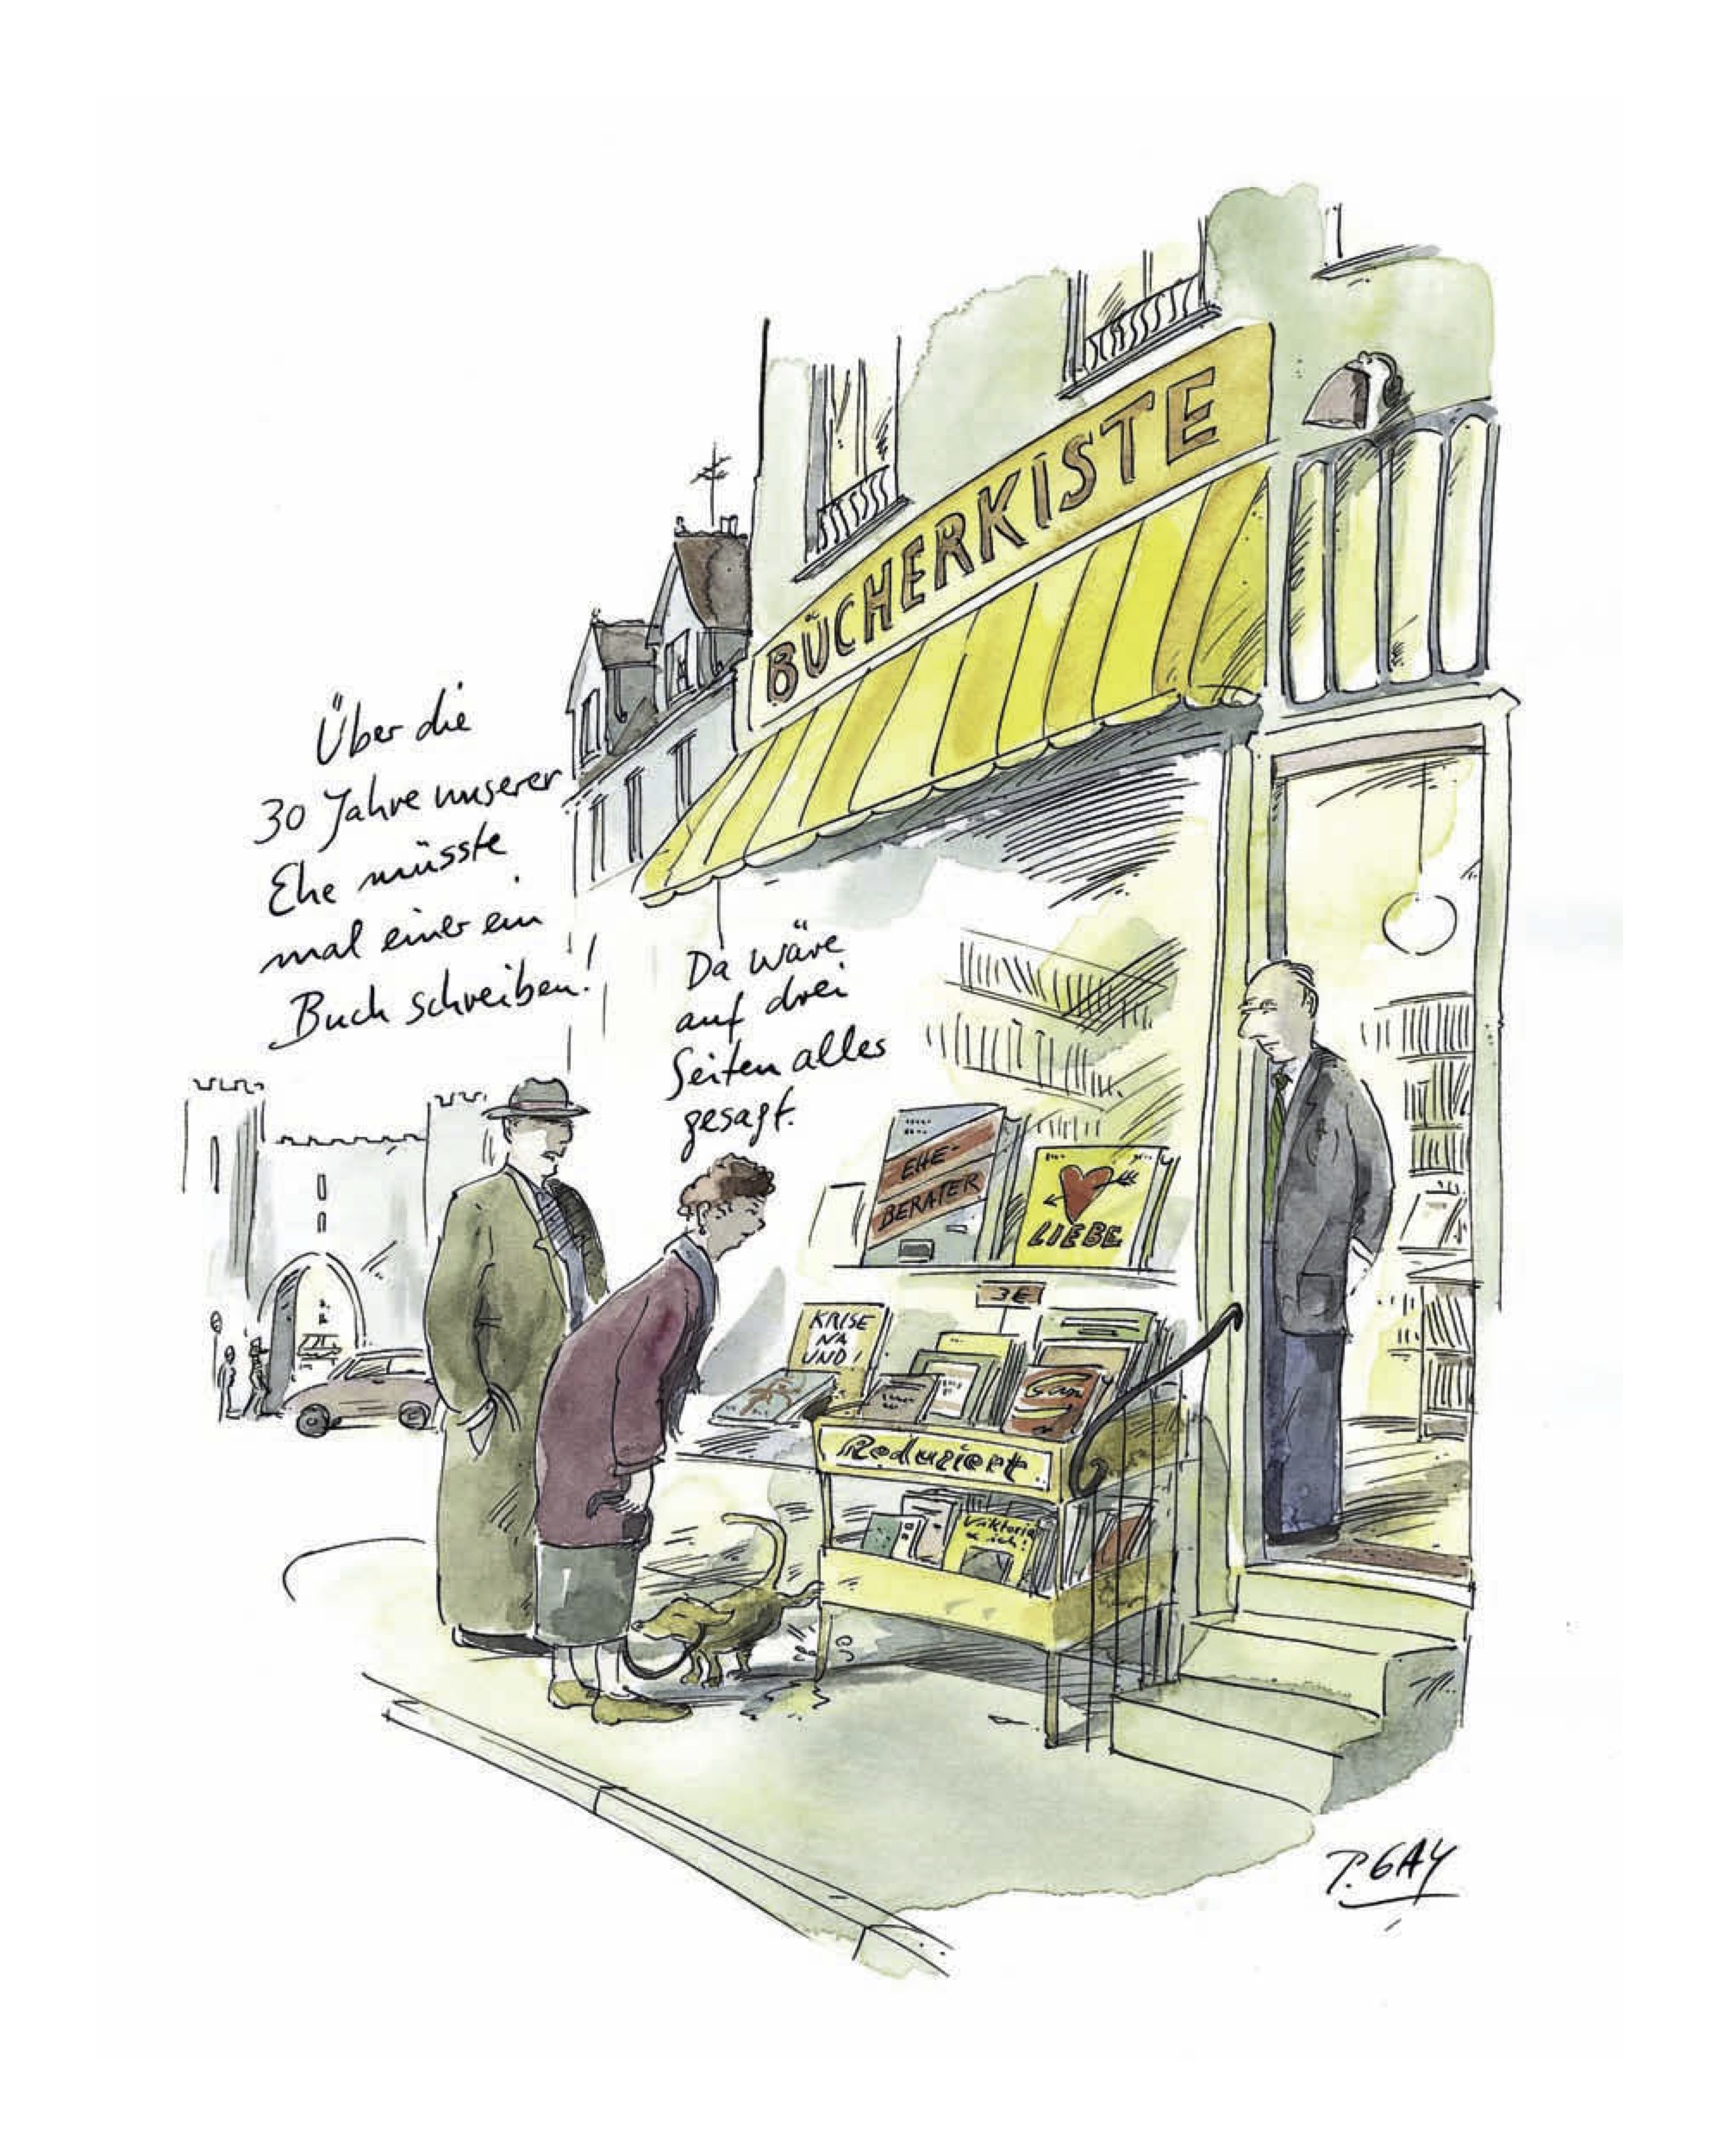 BÜCHERKISTE
Über die
30 Jahre unserer
Ehe müsste
mal einer ein
Buch schreiben!
Da wäre
auf drei
Seiten alles
gesagt.
EHE-
BERATER
LIEBE
3€
KRISE
NA
UND!
Reduziert
Viktoria
& ich!
P. GAY